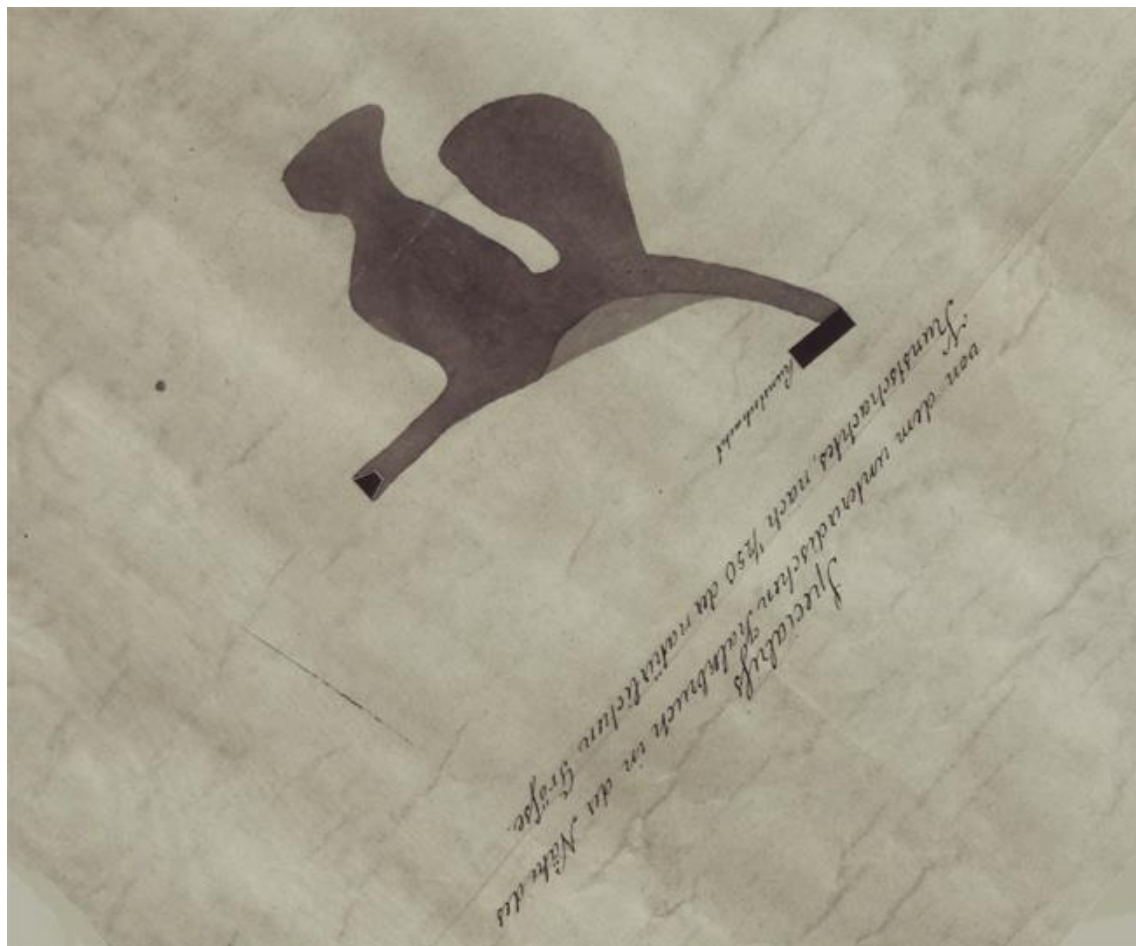 Specialriß
von dem unterirdischen Kalkbruch in der Nähe des
Kunstschachtes, nach 1/250 der natürlichen Größe.
Kunstschacht